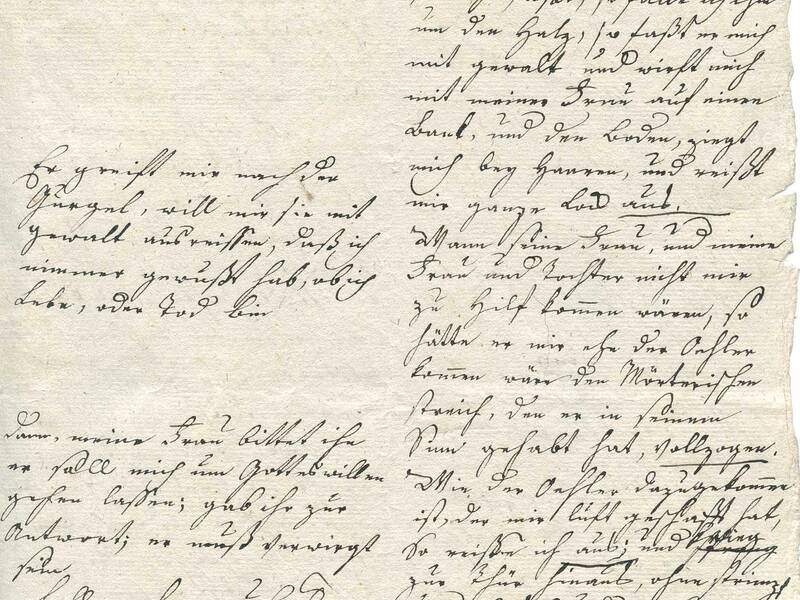 Er greift mir nach der
Gurgel, will mir sie mit
gewalt ausreissen, daß ich
nimmer gewußt hab, ob ich
Lebe, oder Tod bin
dann, meine Frau bittet ihn
er soll mich um Gotteswillen
gehen lassen; gab ihr zur
Antwort; er muß verwirgt
sein
um den Halz, so faßt er mich
mit gewalt und wirft mich
mit meiner Frau auf einen
Bank, und den Boden, ziegt
mich bey Haaren, und reißt
mir ganze Lod aus.
Wann seine Frau, und meine
Frau und Tochter nicht mir
zu Hilf kommen wären, so
hätte er mir ehe der Oehler
kommen wäre den Mörterischen
streich, den er in seinem
Sinn gehabt hat, vollzogen.
Wie der Oehler dazugekommen
ist, der mir luft geschafft hat,
So reisse ich aus; und
zur Thür hinaus, ohne strimpf